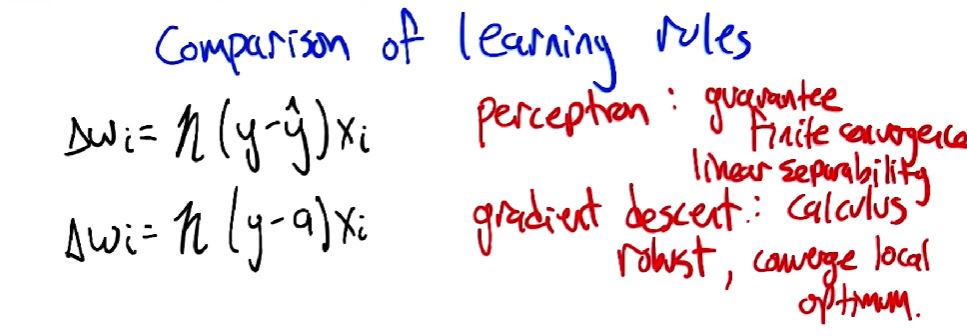 Comparison of learning rules
Δwi = η (y-ŷ) xi
perceptron : guarantee
finite convergence
linear separability
Δwi = η (y-a) xi
gradient descent : calculus
robust, converge local
optimum.